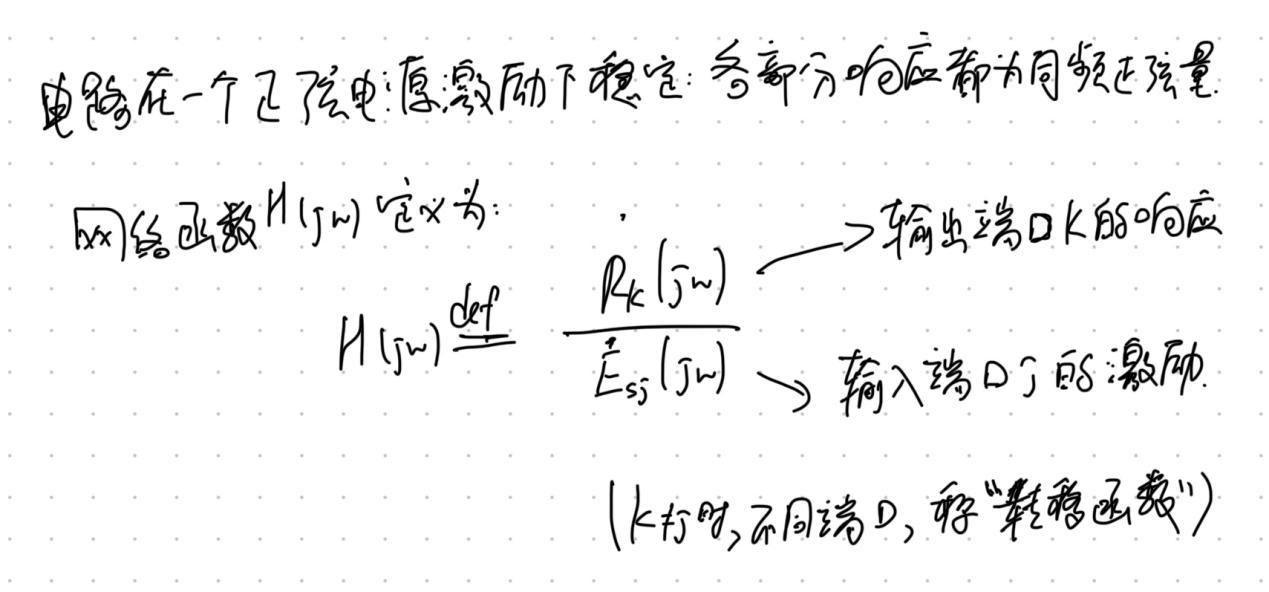 电路在一个正弦电源激励下稳定:各部分响应都为同频正弦量.
网络函数H(jω)定义为:
H(jω) def= Ṙk(jω) / Ėsj(jω)
→输出端口k的响应
→输入端口j的激励.
(k≠j时,不同端口,称“转移函数”)